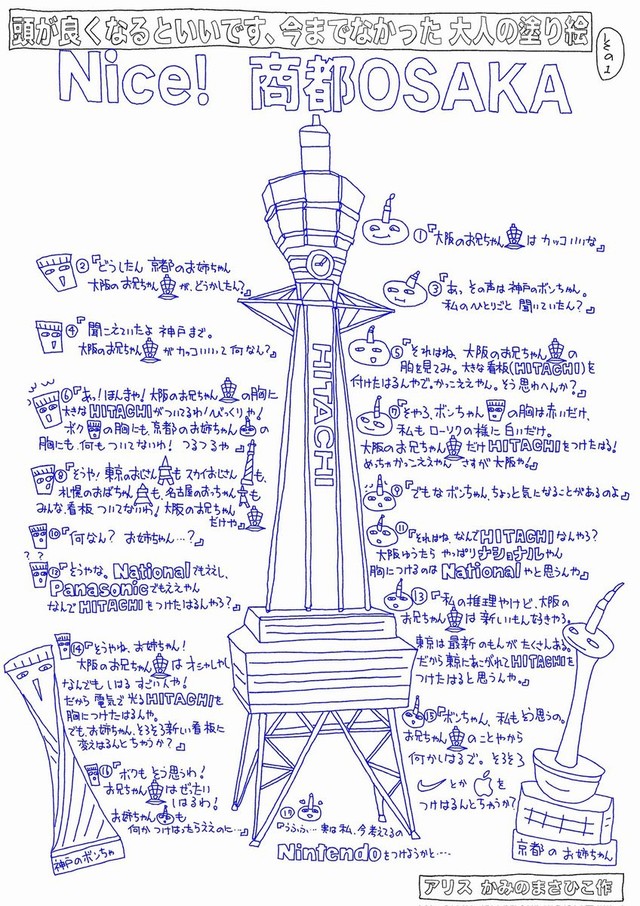 頭が良くなるといいです、今までなかった 大人の塗り絵
その1
Nice! 商都OSAKA
HITACHI
①『大阪のお兄ちゃんは カッコいいな』
②『どうしたん 京都のお姉ちゃん
大阪のお兄ちゃんが、どうかしたん?』
③『あ、その声は 神戸のボンちゃん。
私のひとりごと 聞いていたん?』
④『聞こえていたよ 神戸まで。
大阪のお兄ちゃんがカッコいいって何なん?』
⑤『それはね、大阪のお兄ちゃんの
胸を見てみ。大きな看板(HITACHI)を
付けたはるんやで。かっこええやん。そう思わへんか?』
⑥『あっ!ほんまや!大阪のお兄ちゃんの胸に
大きなHITACHIがついてるわ!びっくりや!
ボクの胸にも、京都のお姉ちゃんの
胸にも、何もついてないわ! つるつるや』
⑦『そやろ、ボンちゃんの胸は赤いだけ、
私も ローソクの様に 白いだけ。
大阪のお兄ちゃんだけHITACHIをつけたはる!
めっちゃかっこええやん さすが大阪や!』
⑧『そうや!東京のおじさんも スカイおじさんも、
札幌のおばちゃんも、名古屋のおっちゃんも
みんな、看板 ついてないわ! 大阪のお兄ちゃん
だけや』
⑨『でもな ボンちゃん、ちょっと気になることがあるのよ』
⑩『何なん? お姉ちゃん…?』
⑪『それはね、なんでHITACHIなんやろ?
大阪ゆうたら やっぱりナショナルやん
胸につけるのは Nationalやと思うんや』
? ?
⑫『どうやな。Nationalでもええし、
Panasonicでもええやん
なんで HITACHIをつけたはるんやろ?』
⑬『私の推理やけど、大阪の
お兄ちゃんは 新しいもん好きやろ。
東京は最新のもんがたくさんある。
だから 東京にあこがれてHITACHIを
つけたはると思うんや。』
⑭『どうやね、お姉ちゃん!
大阪のお兄ちゃんはオシャレやし
なんでも しはる すごい人や!
だから 電気で光るHITACHIを
胸につけたはるんや。
でも、お姉ちゃん、そろそろ新しい看板に
変えはるんとちゃうか?』
⑮『ボンちゃん、私もそう思うの。
お兄ちゃんのことやから
何かしはるで。そろそろ
とか をつけはるんとちゃうか?』
⑯『ボクも そう思うわ!
お兄ちゃんはぜったい
しはるわ!
お姉ちゃんも
何かつけはったらええのに…』
⑰『うふふ… 実は私、今考えてるの
Nintendoをつけようかと…』
神戸のボンちゃ
京都のお姉ちゃん
アリス かみのまさひこ作